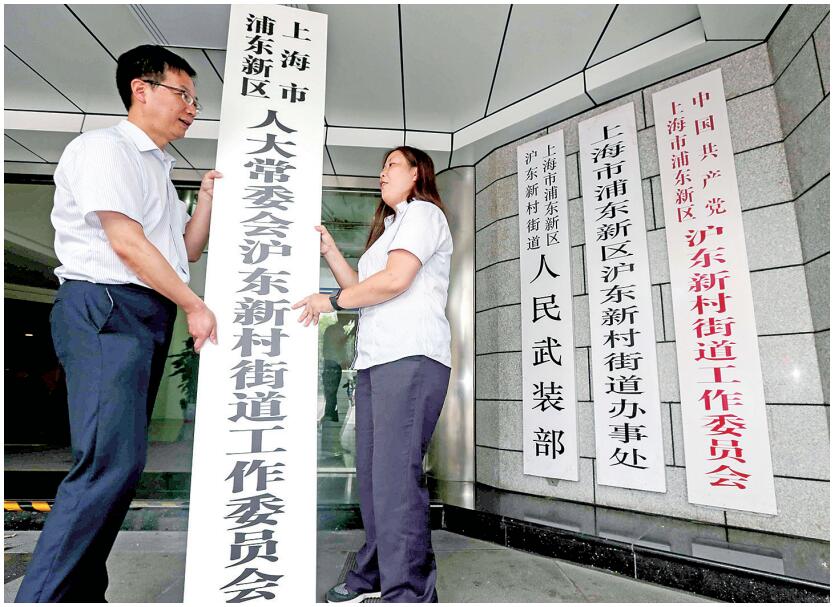 上海市
浦东新区
人大常委会沪东新村街道工作委员会
上海市浦东新区
沪东新村街道
人民武装部
上海市浦东新区沪东新村街道办事处
中国共产党
上海市浦东新区
沪东新村街道工作委员会